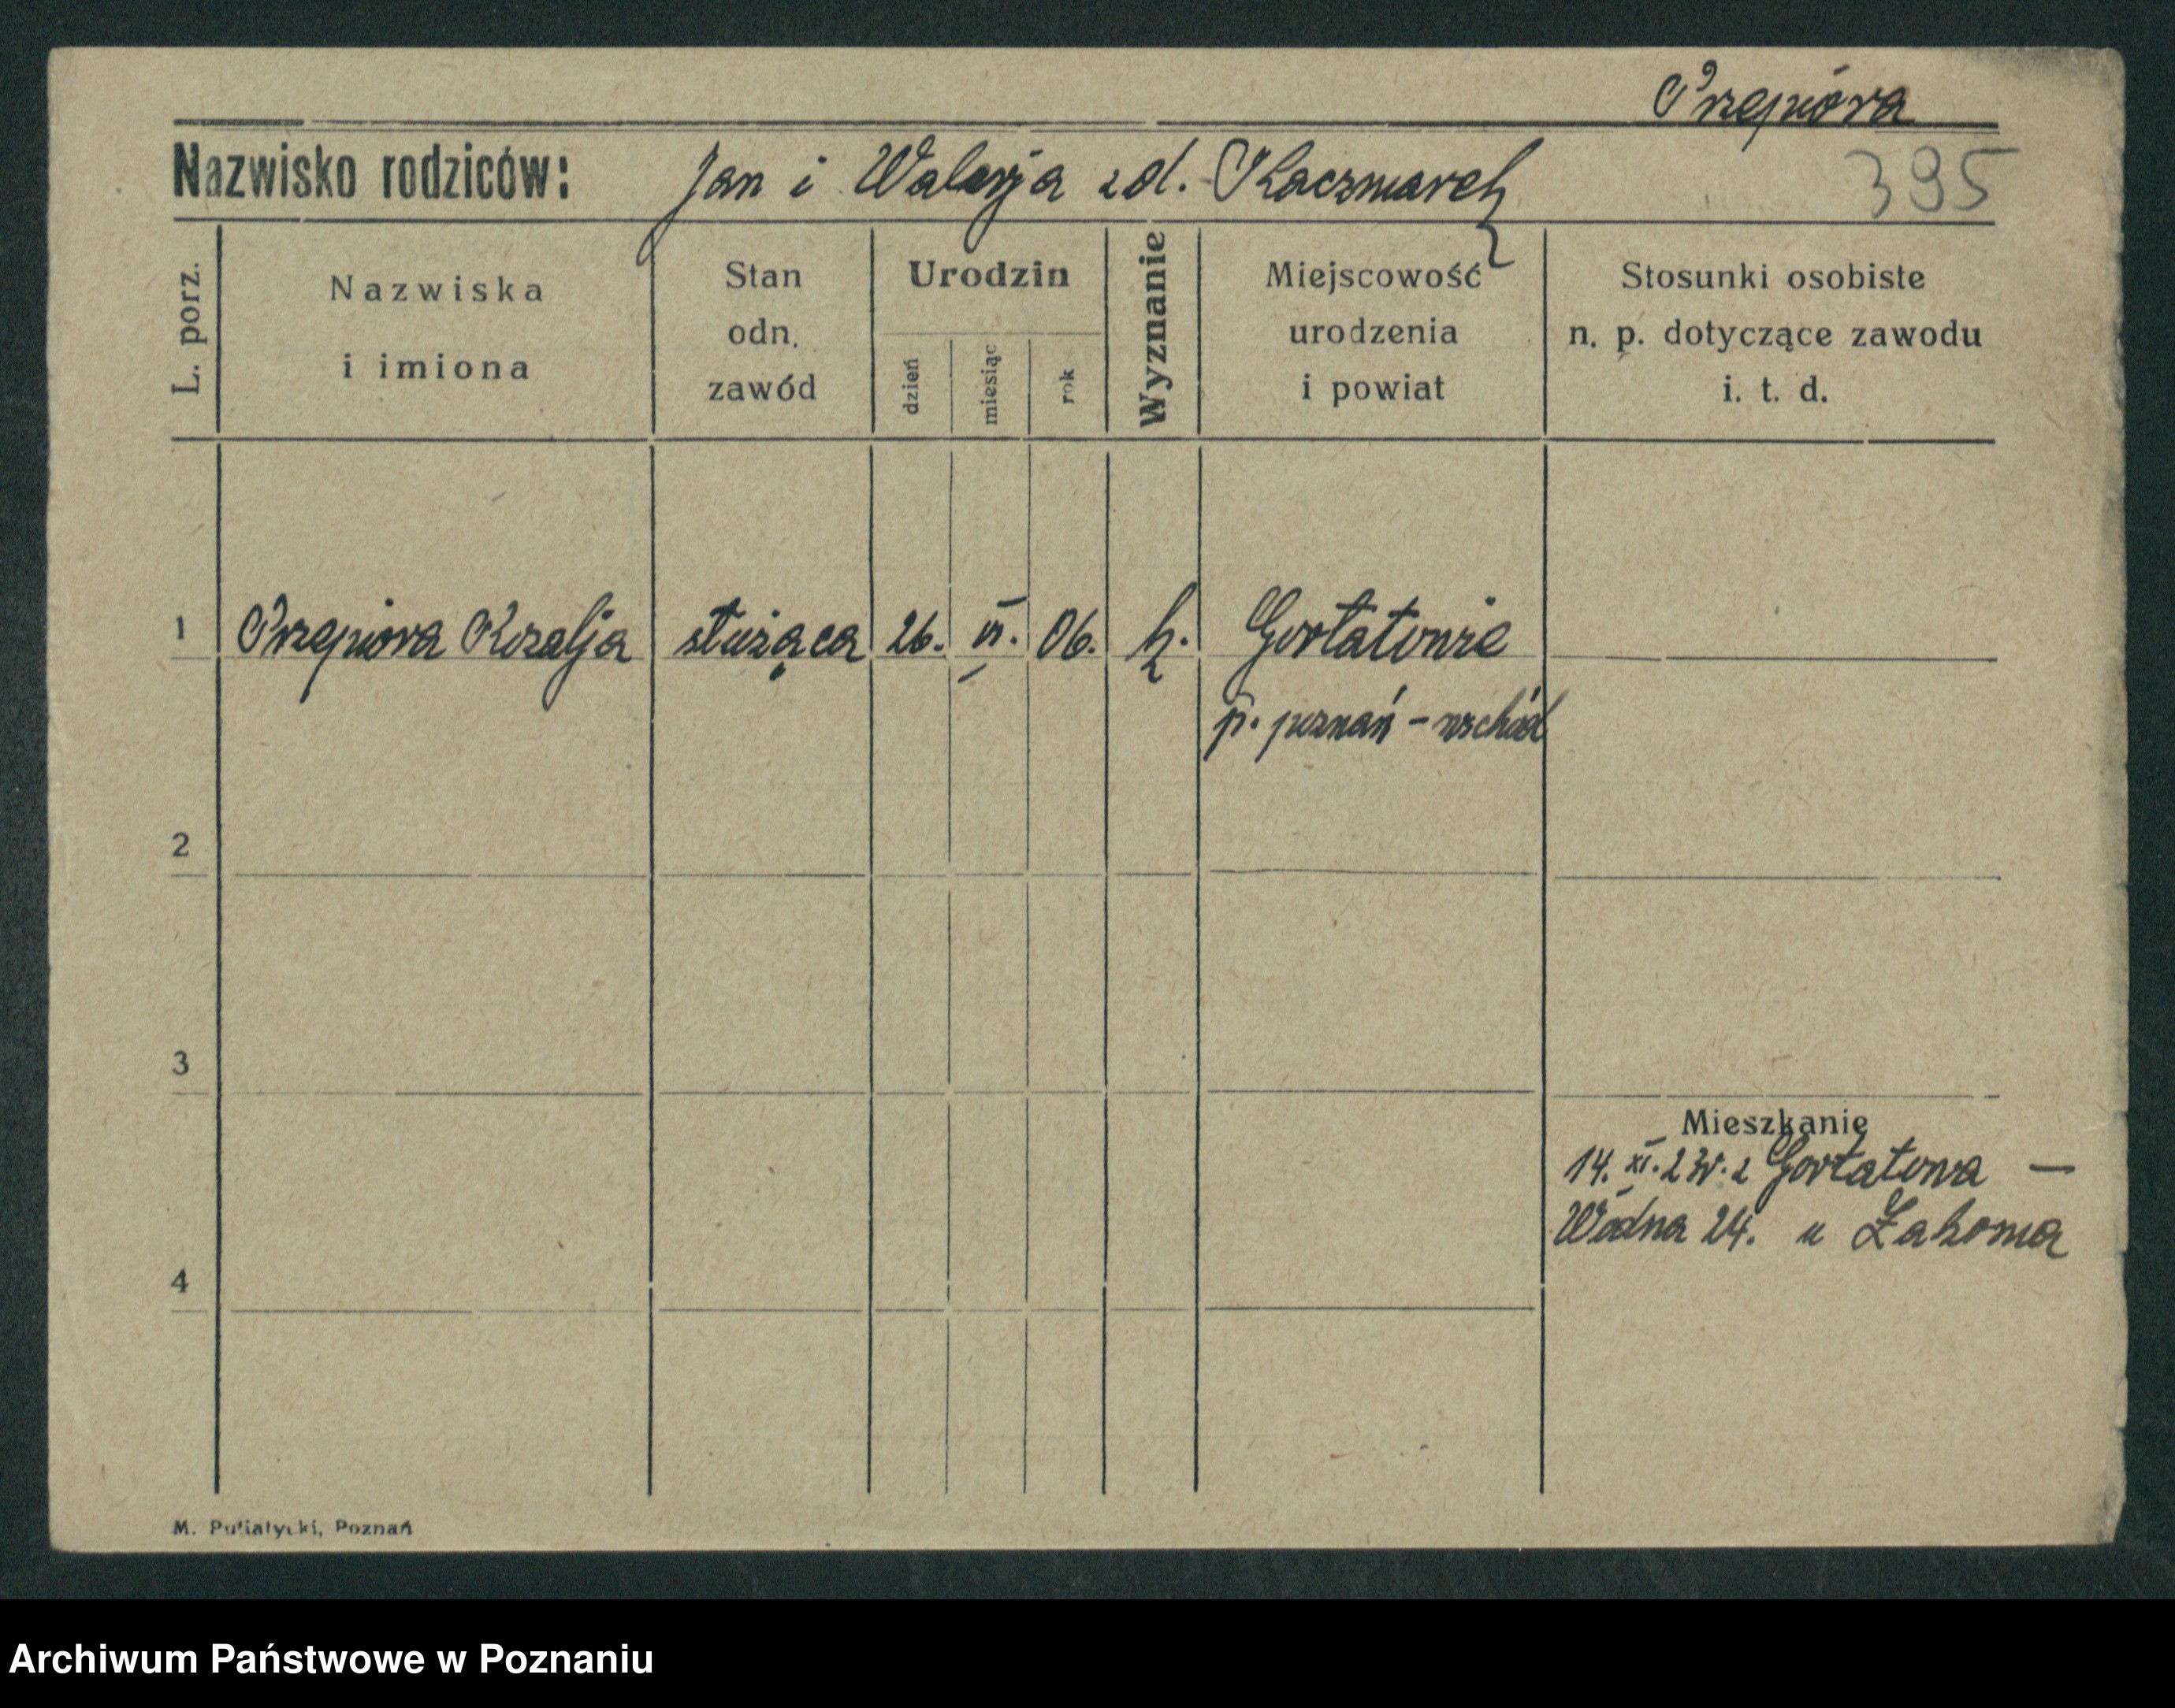 Przepióra
Nazwisko rodziców: Jan i Walerja zd. Kaczmarek
395
L. porz.
Nazwiska
i imiona
Stan
odn.
zawód
Urodzin
dzień
miesiąc
rok
Wyznanie
Miejscowość
urodzenia
i powiat
Stosunki osobiste
n. p. dotyczące zawodu
i. t. d.
1 Przepióra Rozalja służąca 26. VI. 06. k. Gortatowie
p. poznań - wschód
2
3
Mieszkanie
14. XI. 23r. z Gortatowa —
Wodna 24. u
4
M. Putiatycki, Poznań
Archiwum Państwowe w Poznaniu